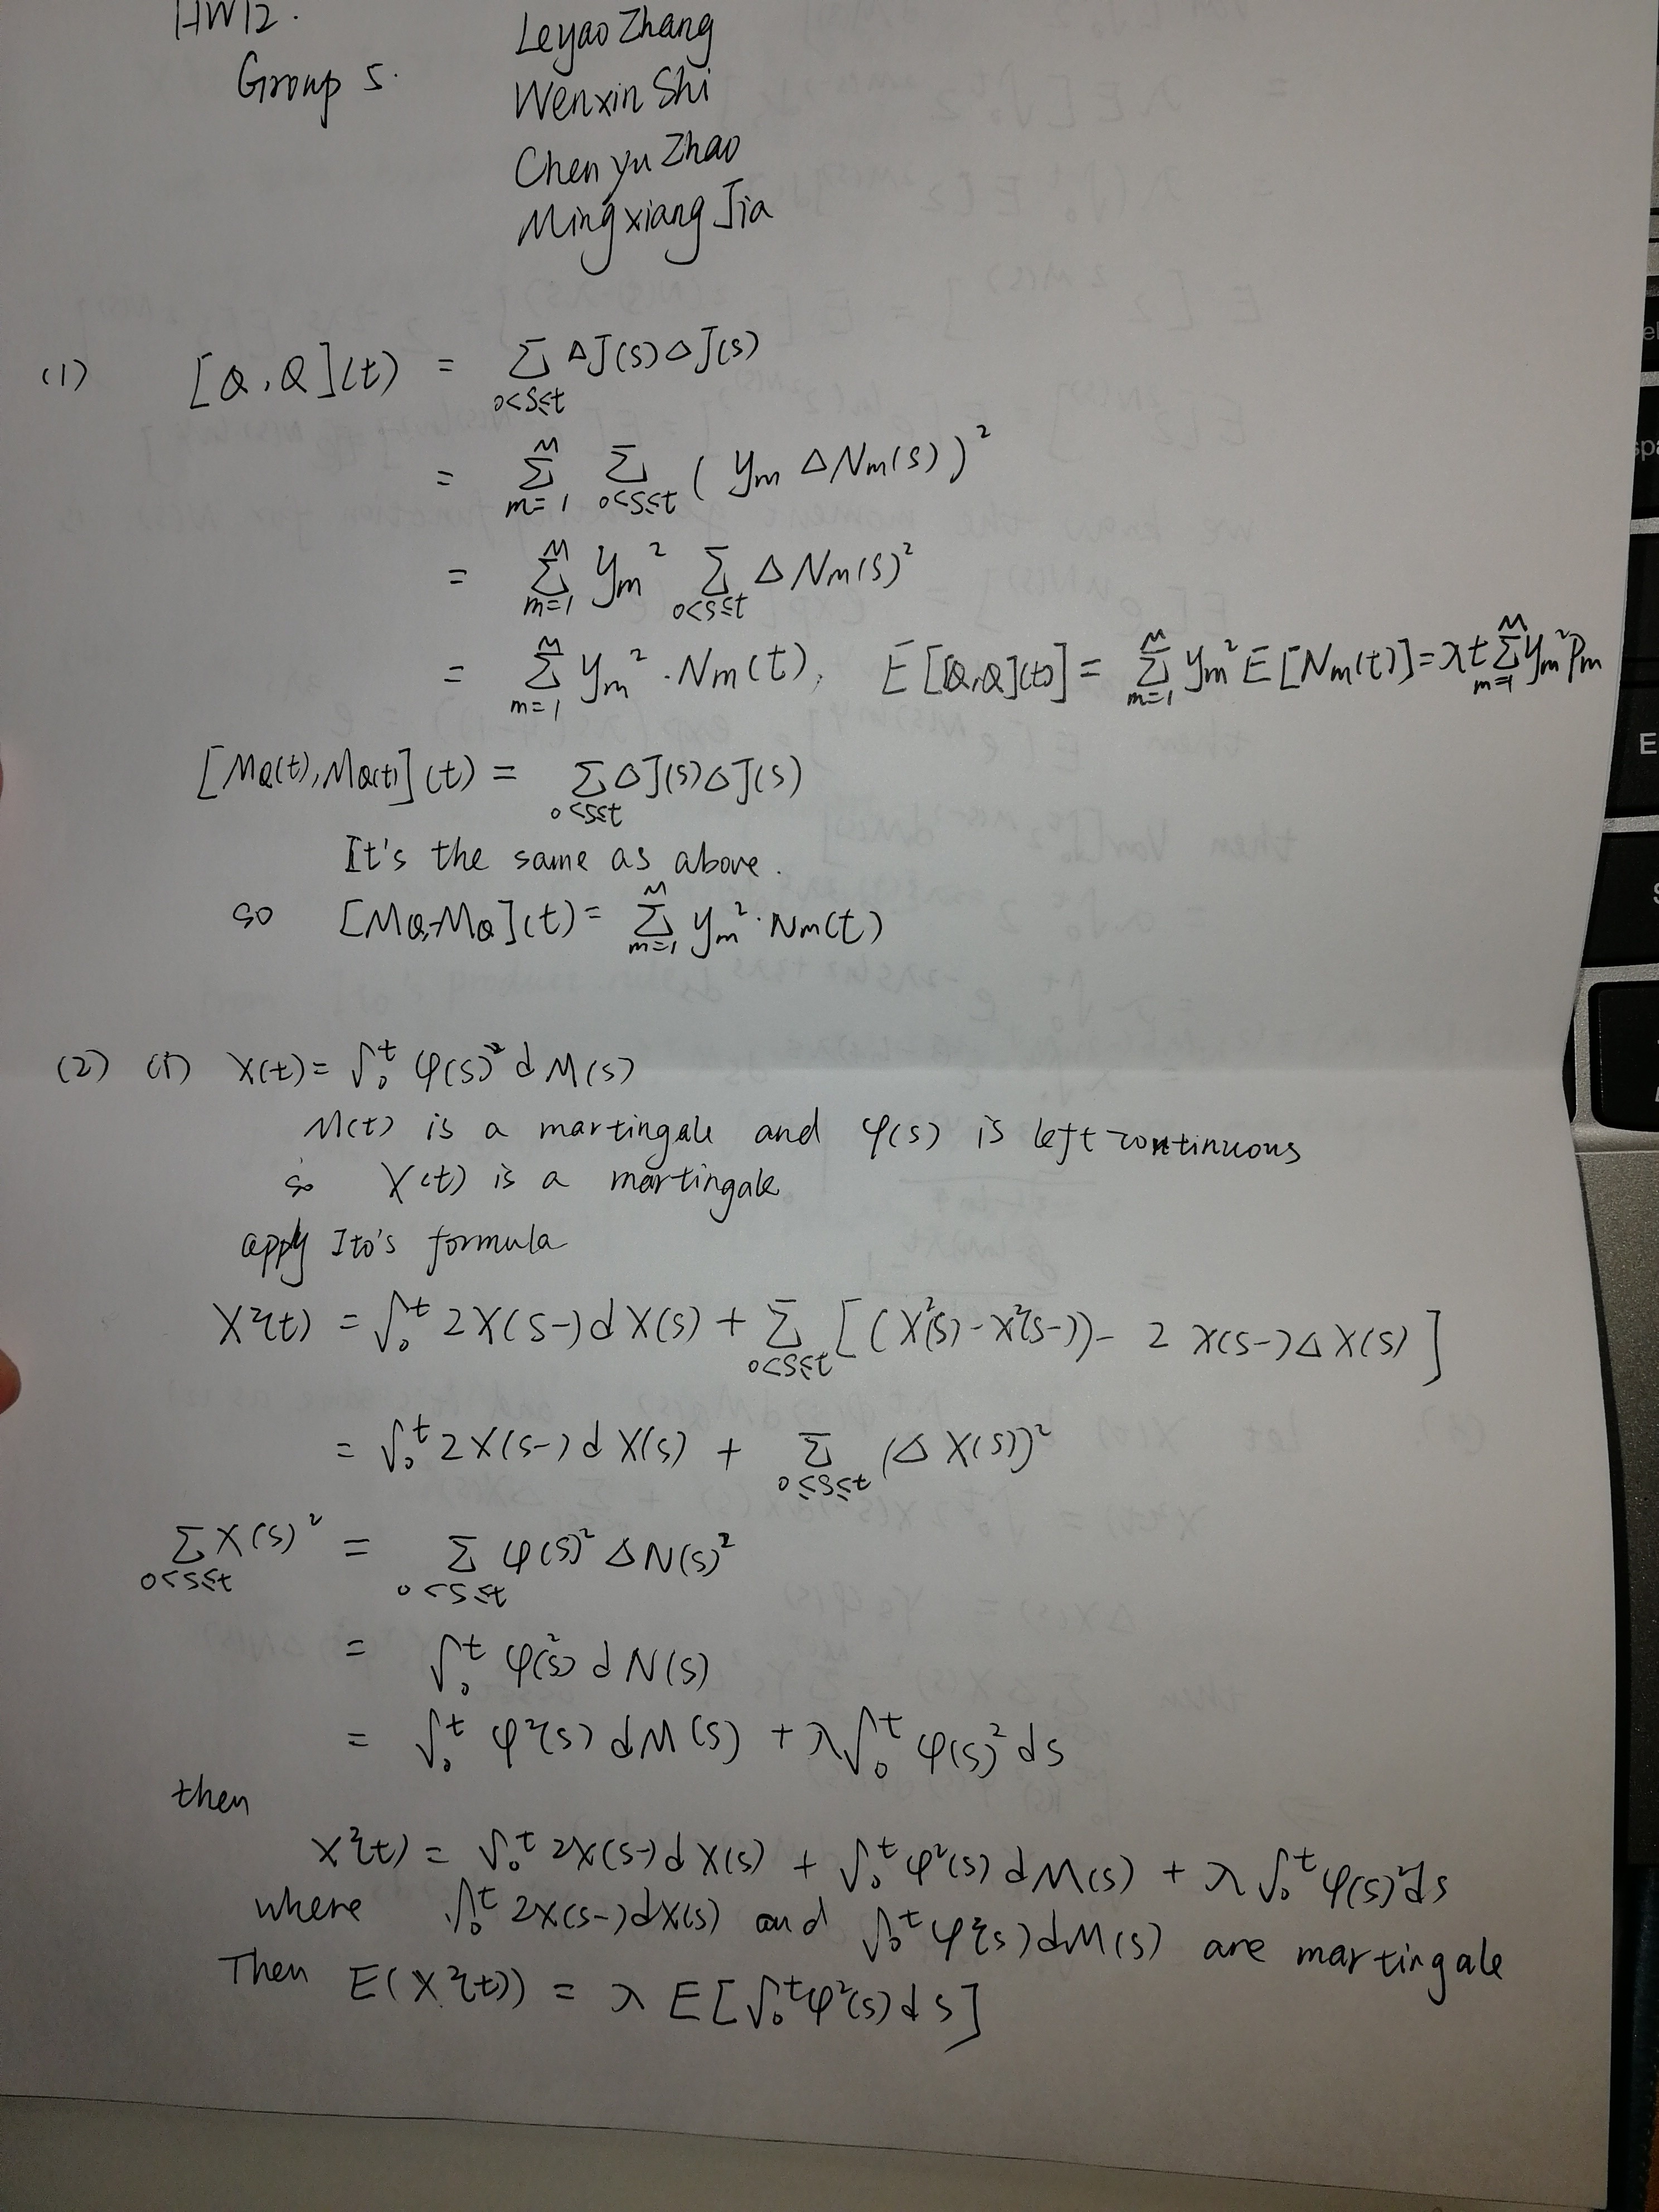 HW12.
Group 5.
Leyao Zhang
Wenxin Shi
Chenyu Zhao
Mingxiang Jia
(1) [Q,Q](t) = Σ_{0<s≤t} ΔJ(s)ΔJ(s)
= Σ_{m=1}^{M} Σ_{0<s≤t} (y_m ΔN_m(s))²
= Σ_{m=1}^{M} y_m² Σ_{0<s≤t} ΔN_m(s)²
= Σ_{m=1}^{M} y_m² · N_m(t), E[[Q,Q](t)] = Σ_{m=1}^{M} y_m² E[N_m(t)] = λt Σ_{m=1}^{M} y_m² p_m
[M_Q(t), M_Q(t)](t) = Σ_{0<s≤t} ΔJ(s)ΔJ(s)
It's the same as above.
so [M_Q, M_Q](t) = Σ_{m=1}^{M} y_m² · N_m(t)
(2) (1) X(t) = ∫₀ᵗ φ(s)² dM(s)
M(t) is a martingale and φ(s) is left continuous
so X(t) is a martingale
apply Ito's formula
X²(t) = ∫₀ᵗ 2X(s-)dX(s) + Σ_{0<s≤t} [(X²(s) - X²(s-)) - 2X(s-)ΔX(s)]
= ∫₀ᵗ 2X(s-)dX(s) + Σ_{0≤s≤t} (ΔX(s))²
Σ_{0<s≤t} X(s)² = Σ_{0<s≤t} φ(s)² ΔN(s)²
= ∫₀ᵗ φ²(s) dN(s)
= ∫₀ᵗ φ²(s) dM(s) + λ∫₀ᵗ φ(s)² ds
then
X²(t) = ∫₀ᵗ 2X(s-)dX(s) + ∫₀ᵗ φ²(s) dM(s) + λ∫₀ᵗ φ(s)² ds
where ∫₀ᵗ 2X(s-)dX(s) and ∫₀ᵗ φ²(s)dM(s) are martingale
Then E(X²(t)) = λ E[∫₀ᵗ φ²(s) ds]